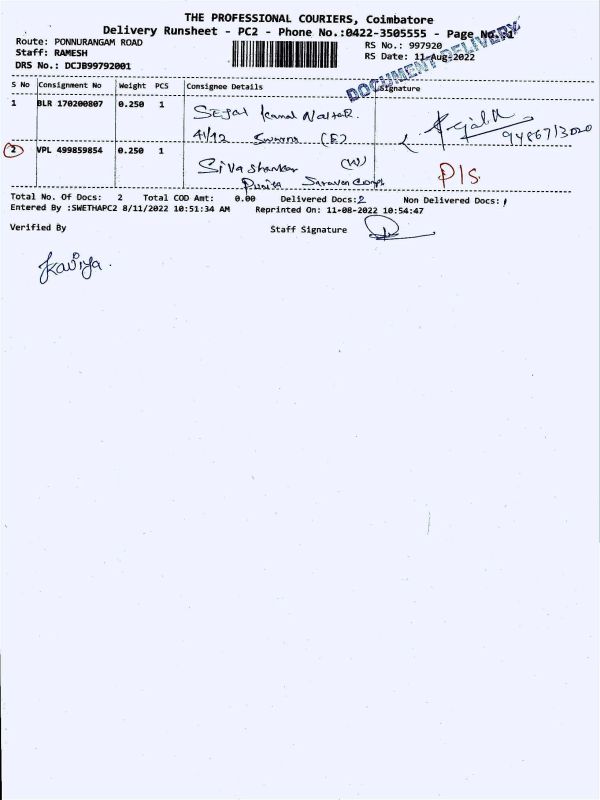 THE PROFESSIONAL COURIERS, Coimbatore
Delivery Runsheet - PC2 - Phone No.:0422-3505555 - Page No.:1
Route: PONNURANGAM ROAD
RS No.: 997920
Staff: RAMESH
RS Date: 11-Aug-2022
DRS No.: DCJB99792001
DOCUMENT DELIVERY
S No Consignment No Weight PCS Consignee Details Signature
1 BLR 170200807 0.250 1 Sejal Kamal
41/12 (E)
2 VPL 499859854 0.250 1 Siva Shankar (W)
P/S.
Total No. Of Docs: 2 Total COD Amt: 0.00 Delivered Docs: 2 Non Delivered Docs: /
Entered By :SWETHAPC2 8/11/2022 10:51:34 AM Reprinted On: 11-08-2022 10:54:47
Verified By Staff Signature
Kaviya.